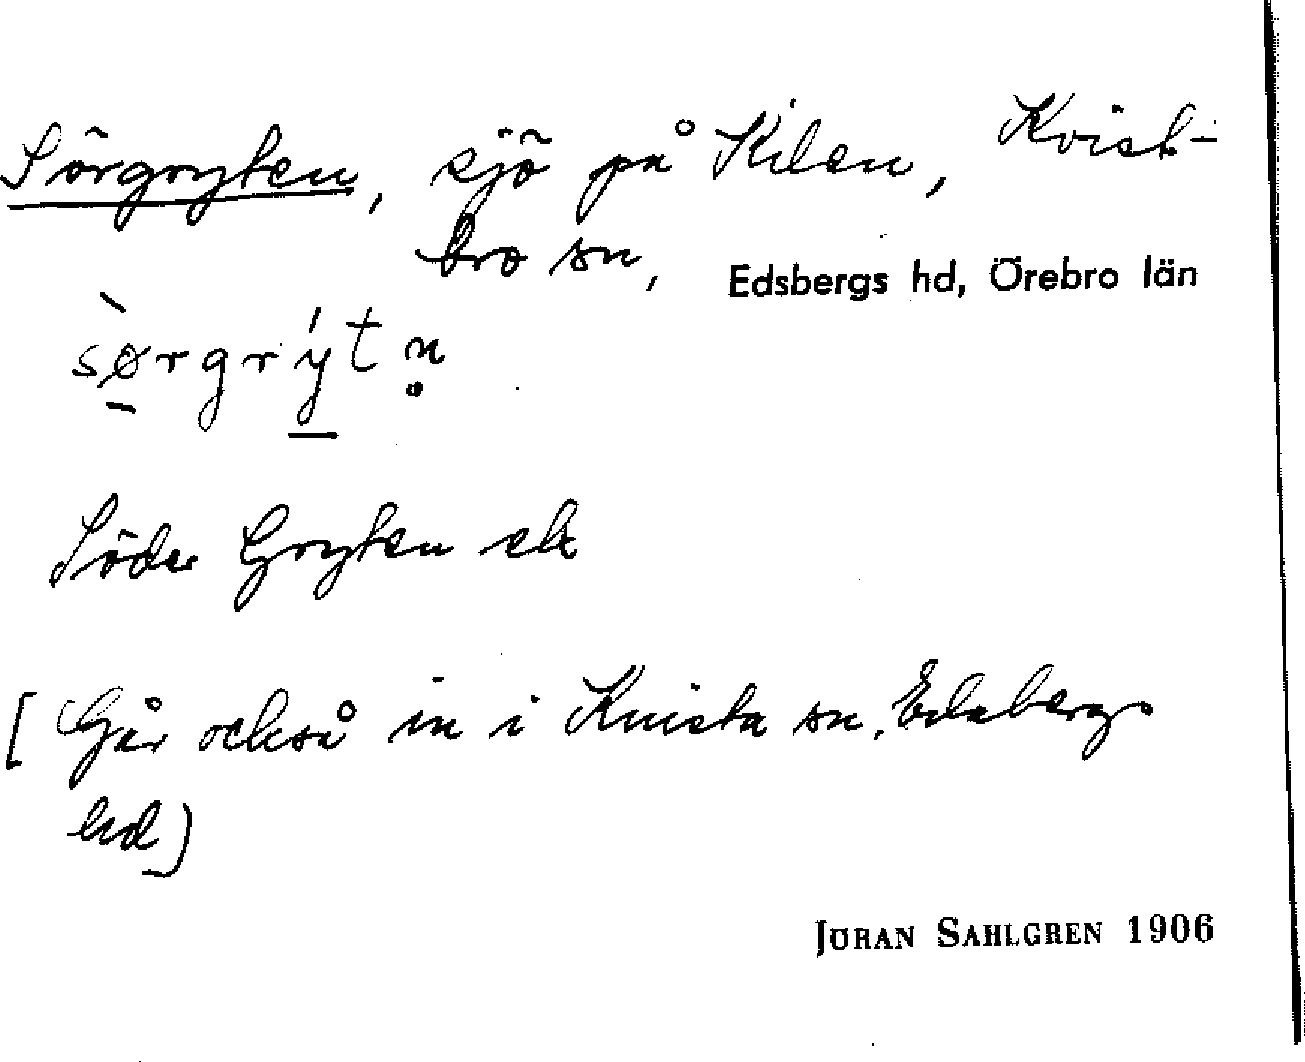 Sörgryten, sjö på Kilen, Kvist-
bro sn, Edsbergs hd, Örebro län
sø̀rgrýtn̥
Söder Gryten
[Går också in i Knista sn, Edsbergs
hd]
JÖRAN SAHLGREN 1906